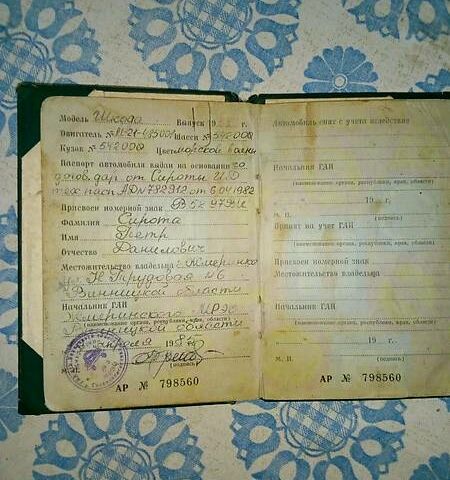 Модель Шкода Выпуск 19 г.
Двигатель № Шасси № 542000
Кузов № 542000 Цвет морской волны
Паспорт автомобиля выдан на основании
догов. дар от Сироты И.Д
тех пасп АДN 782912 от 6.04.1982
Присвоен номерной знак
Фамилия Сирота
Имя Петр
Отчество Данилович
Местожительство владельца г. Жмеринка
ул. Трудовая
Винницкой области
Начальник ГАИ
Жмеринского МРЭО
Винницкой области
(наименование органа, республики, края, области)
апреля 198 г.
М. П. (подпись)
АР № 798560
Автомобиль снят с учета вследствие
Начальник ГАИ
(наименование органа, республики, края, области)
19 г.
М. П. (подпись)
Принят на учет ГАИ
(наименование органа, республики, края, области)
Присвоен номерной знак
Местожительство владельца
Начальник ГАИ
(наименование органа, республики, края, области)
19 г.
М. П. (подпись)
АР № 798560